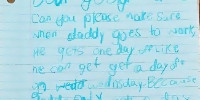 Dear google
Can you please make sure
when daddy goes to work,
he gets one day off. Like
he can get get a day off
on wednesday. Because
daddy only